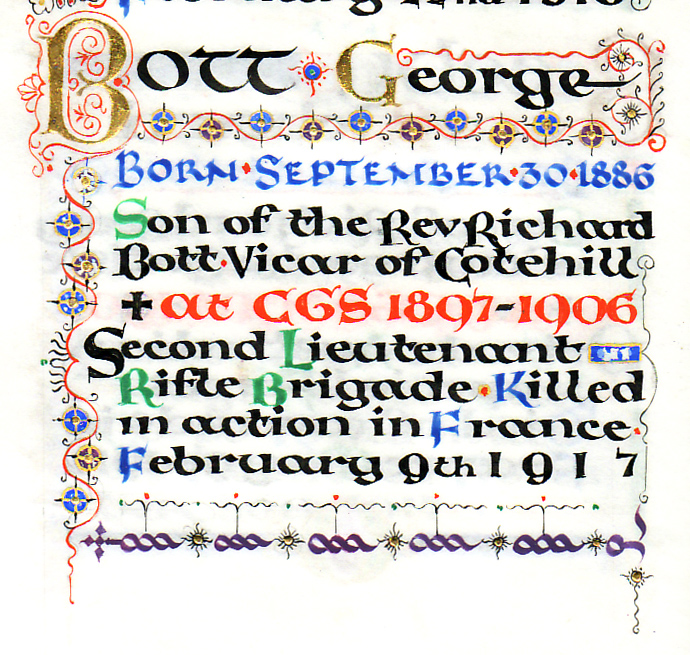 Bott · George
Born · September · 30 · 1886
Son of the Rev Richard
Bott · Vicar of Cotehill
✝ at CGS 1897-1906
Second Lieutenant
Rifle Brigade · Killed
in action in France ·
February 9th 1917